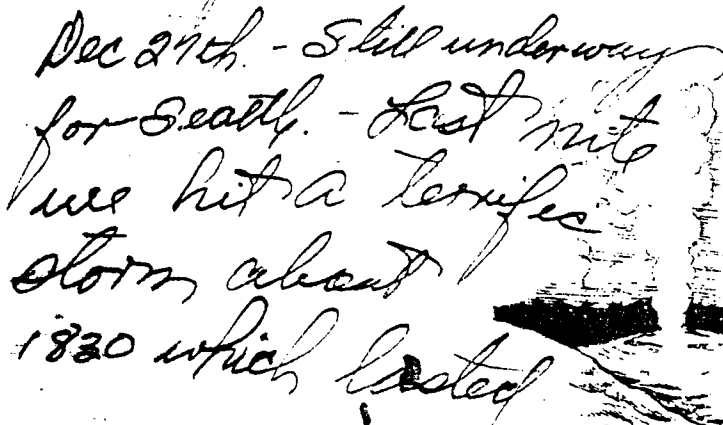 Dec 27th. - Still underway
for Seattle. - Last nite
we hit a terrific
storm about
1830 which lasted